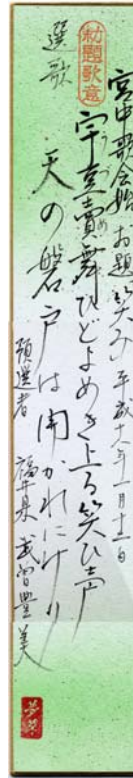 宮中歌会始お題笑み平成十八年一月十二日
勅題歌意
宇受賣舞ひどよめき上る笑ひ声
選歌
天の磐戸は開かれにけり
預選者 福井県 武曽豊美